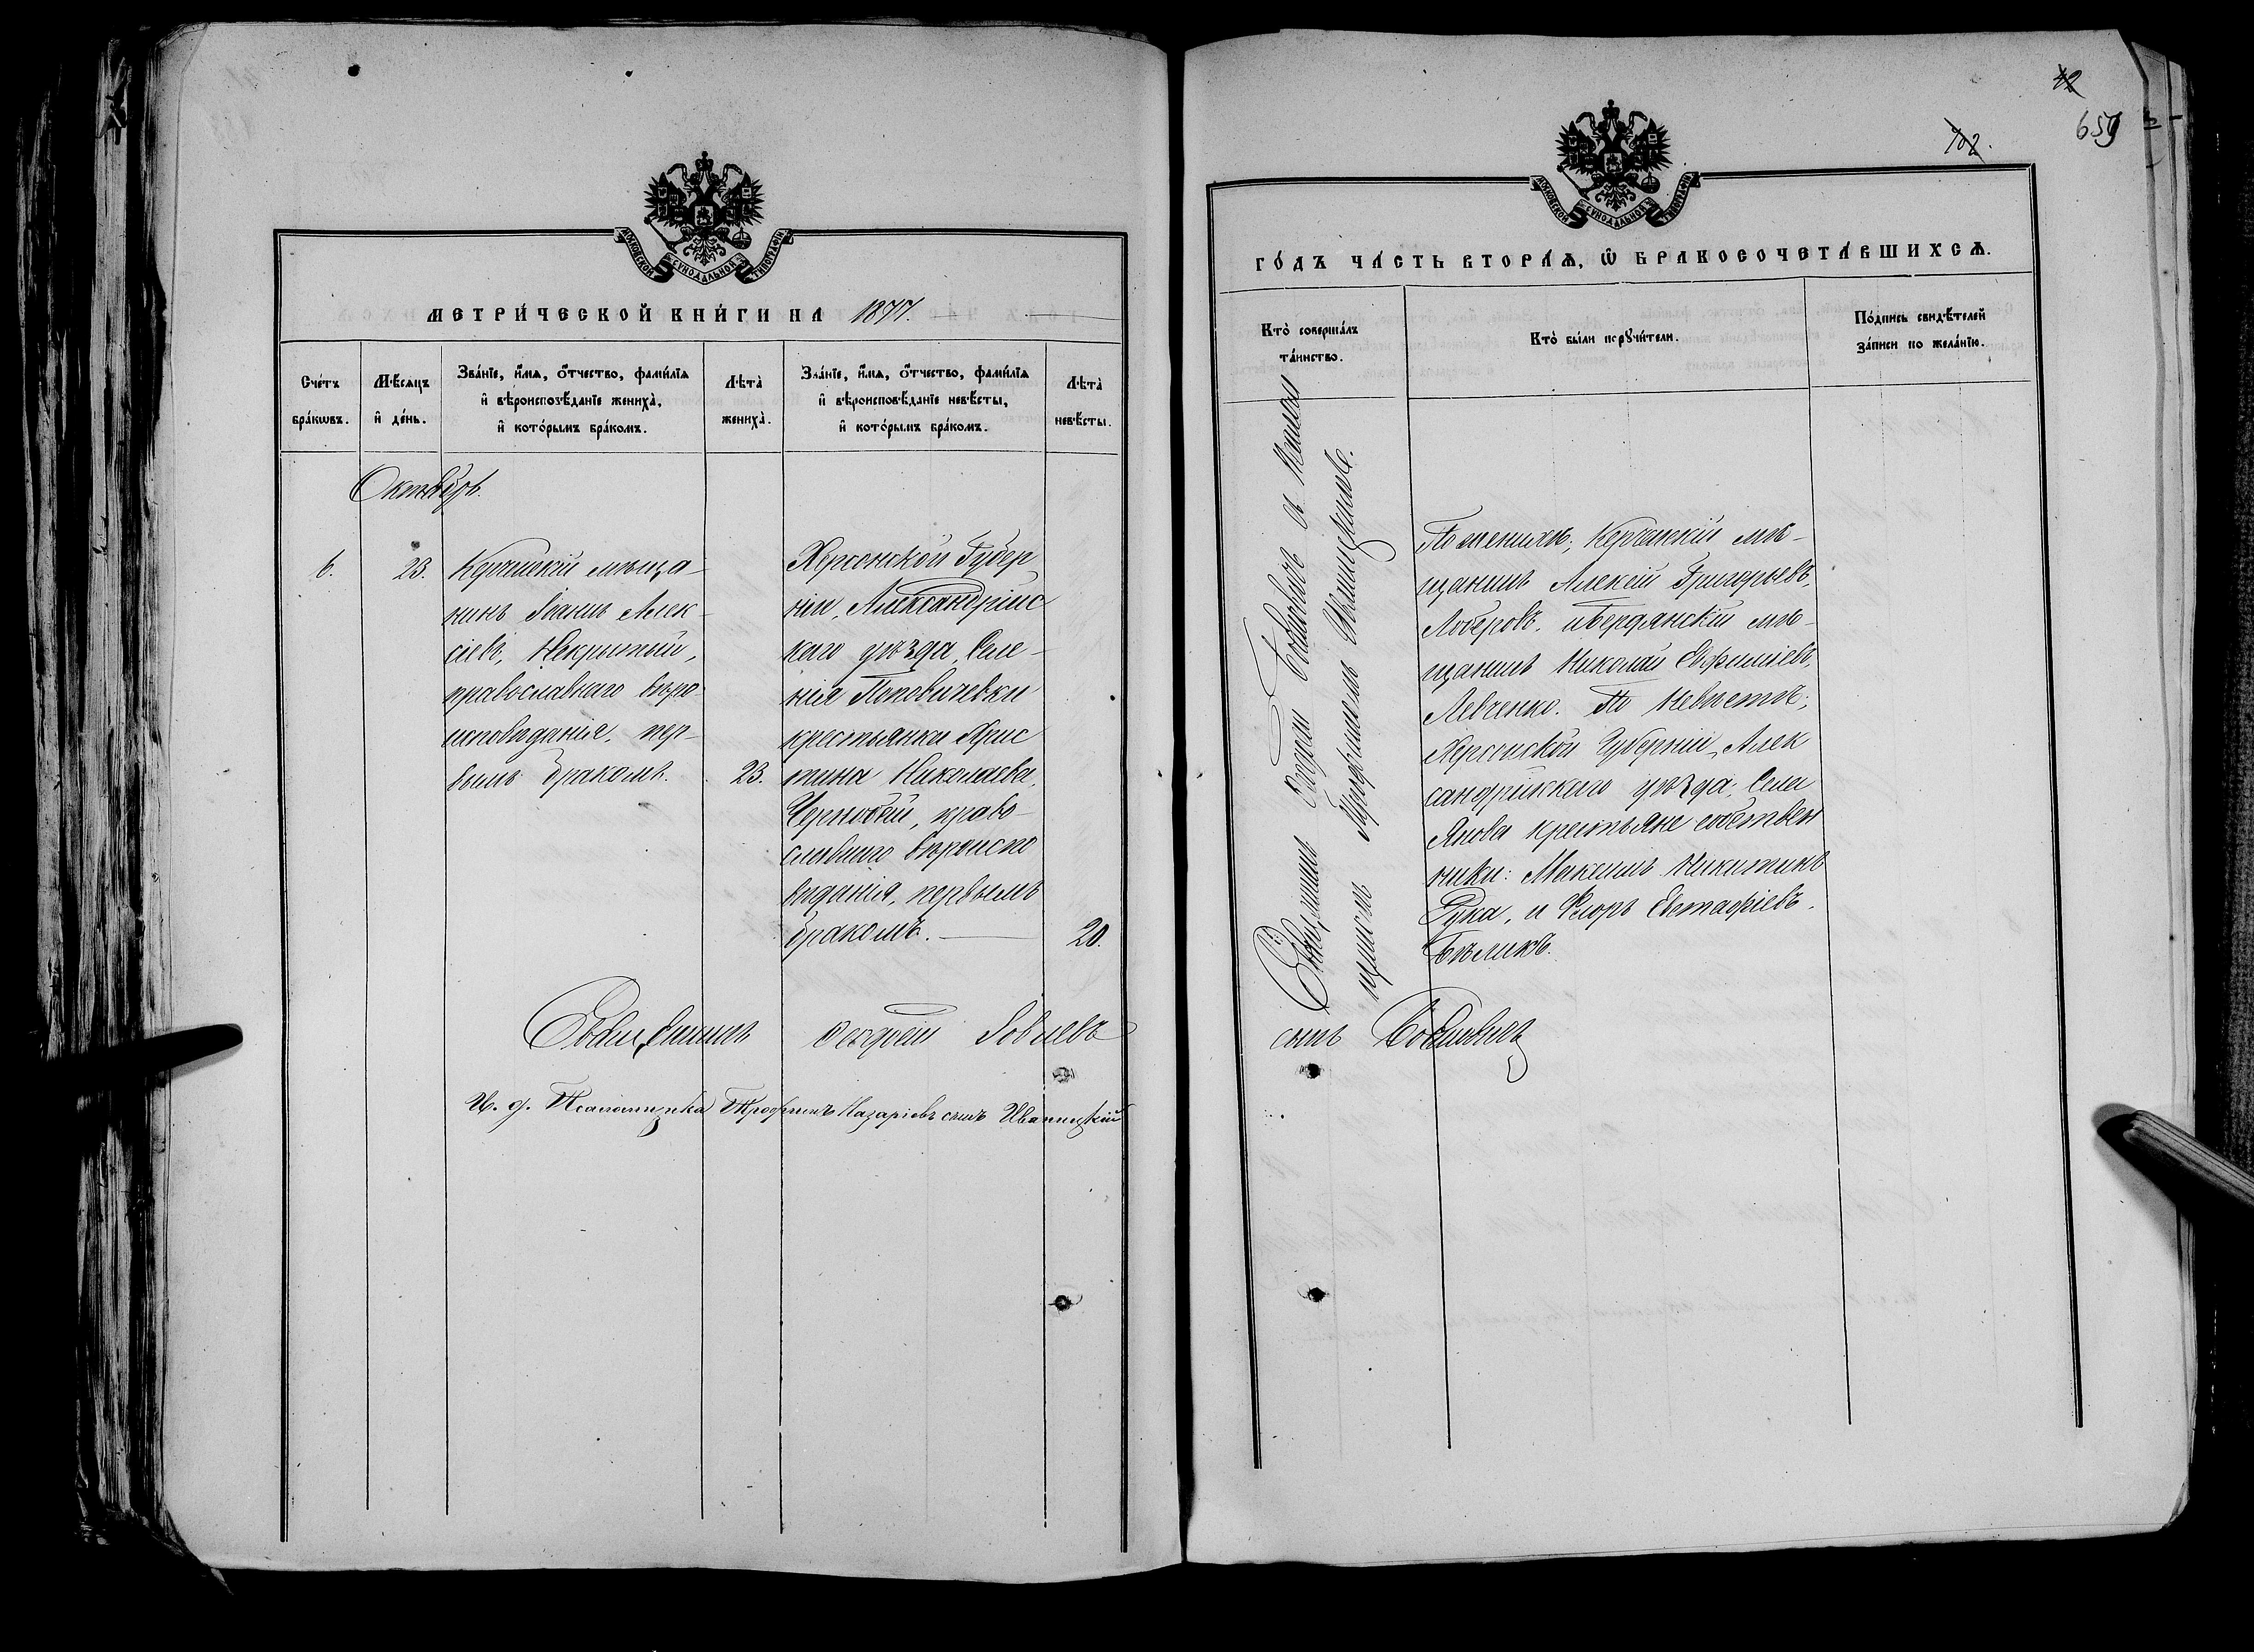 МОСКОВСКОЙ СѴНОДАЛЬНОЙ ТИПОГРАФІИ
МЕТРИ́ЧЕСКОЙ КНИ́ГИ НА 1877.
Сче́тъ бра́кѡвъ.
Мѣ́сяцъ и҆ де́нь.
Зва́нїе, и҆́мѧ, ѻ҆́тчество, фами́лїѧ
и҆ вѣроисповѣ́данїе жениха̀,
и҆ кото́рымъ бра́комъ.
Лѣта̀ жениха̀.
Зва́нїе, и҆́мѧ, ѻ҆́тчество, фами́лїѧ
и҆ вѣроисповѣ́данїе невѣ́сты,
и҆ кото́рымъ бра́комъ.
Лѣта̀ невѣ́сты.
Октябрь.
6.
23.
Керчинскій мѣща-
нинъ Іоаннъ Алек-
сіевъ, Некрытый,
православнаго вѣро-
исповѣданія, пер-
вымъ бракомъ.
23.
Херсонской Губер
ніи, Александрійс
каго уѣзда, Селе-
нія Поповичевки
крестьянка Хрис
тина Николаева,
Черновой, право-
славнаго вѣроиспо
вѣданія, первымъ
бракомъ.
20.
Священникъ Андрей Іовлевъ
И. д. Псаломщика Трофимъ Назаріевъ сынъ Иваницкій
42
102.
659
МОСКОВСКОЙ СѴНОДАЛЬНОЙ ТИПОГРАФІИ
ГО́ДЪ ЧА́СТЬ ВТОРА́Ѧ, Ѡ҆ БРАКОСОЧЕТА́ВШИХСѦ.
Кто̀ соверша́лъ
та́инство.
Кто̀ бы́ли порꙋчи́тели.
По́дпись свидѣ́телей
за́писи по жела́нїю.
Священникъ Андрей
Трофимомъ Иваницкимъ.
По женихѣ; Керчинскій мѣ-
щанинъ Алексій Григорьевъ,
Лобовъ, и Бердянскій мѣ-
щанинъ Николай Евфиміевъ,
Левченко. По Невѣстѣ;
Херсонской Губерніи, Алек
сандрійскаго уѣзда, Села
Янова крестьяне собствен
ники: Максимъ Никитинъ
Рука, и Флоръ Евстафіевъ,
Бѣликъ.
сынъ